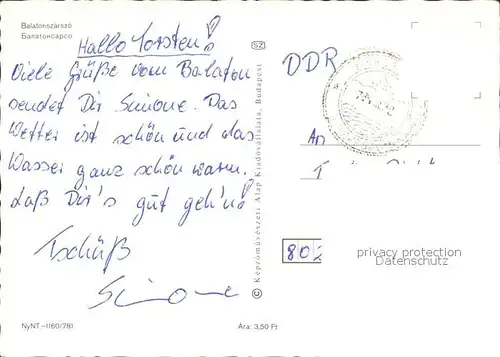 Balatonszárszó
Балатонсарсо
Hallo Torsten!
Viele Grüße vom Balaton
sendet Dir Simone. Das
Wetter ist schön und das
Wasser ganz schön warm.
Laß Dir's gut geh'n!
Tschüß
Simone
NyNT –1160/781
Ára: 3,50 Ft
SZ
© Képzőművészeti Alap Kiadóvállalata, Budapest
DDR
An
T
80
privacy protection
Datenschutz